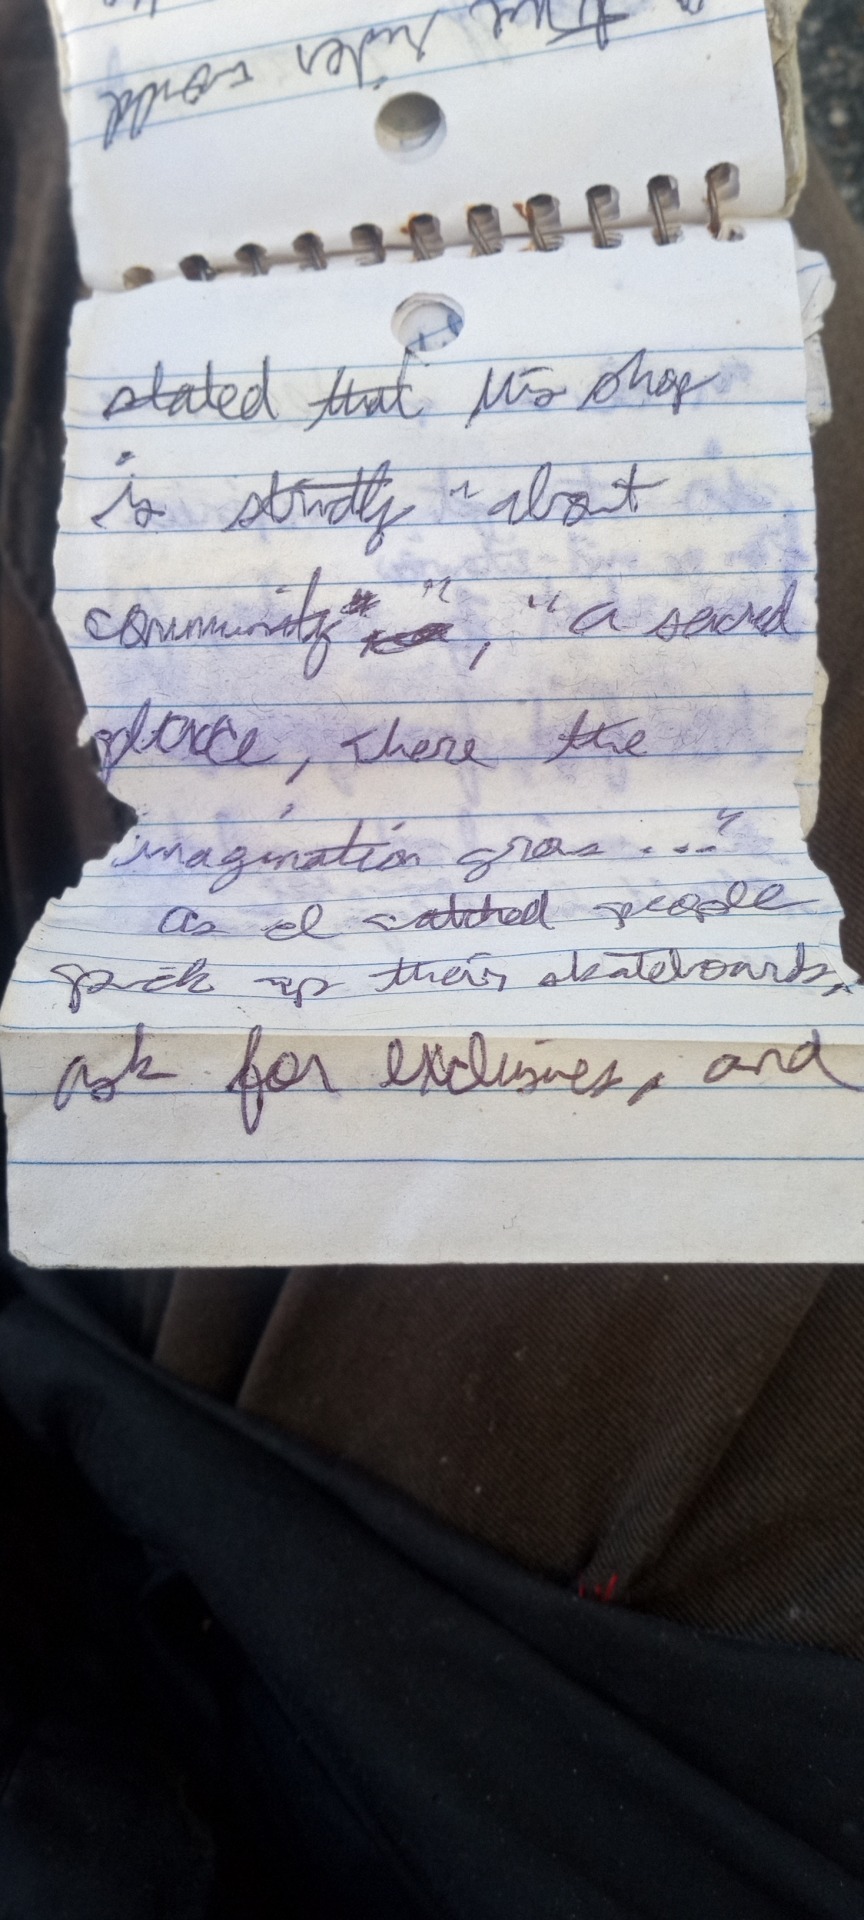 a true rider would
stated that his shop
is strictly "about
community", "a sacred
place, where the
imagination grows ..."
as I watched people
pick up their skateboards,
ask for exclusives, and